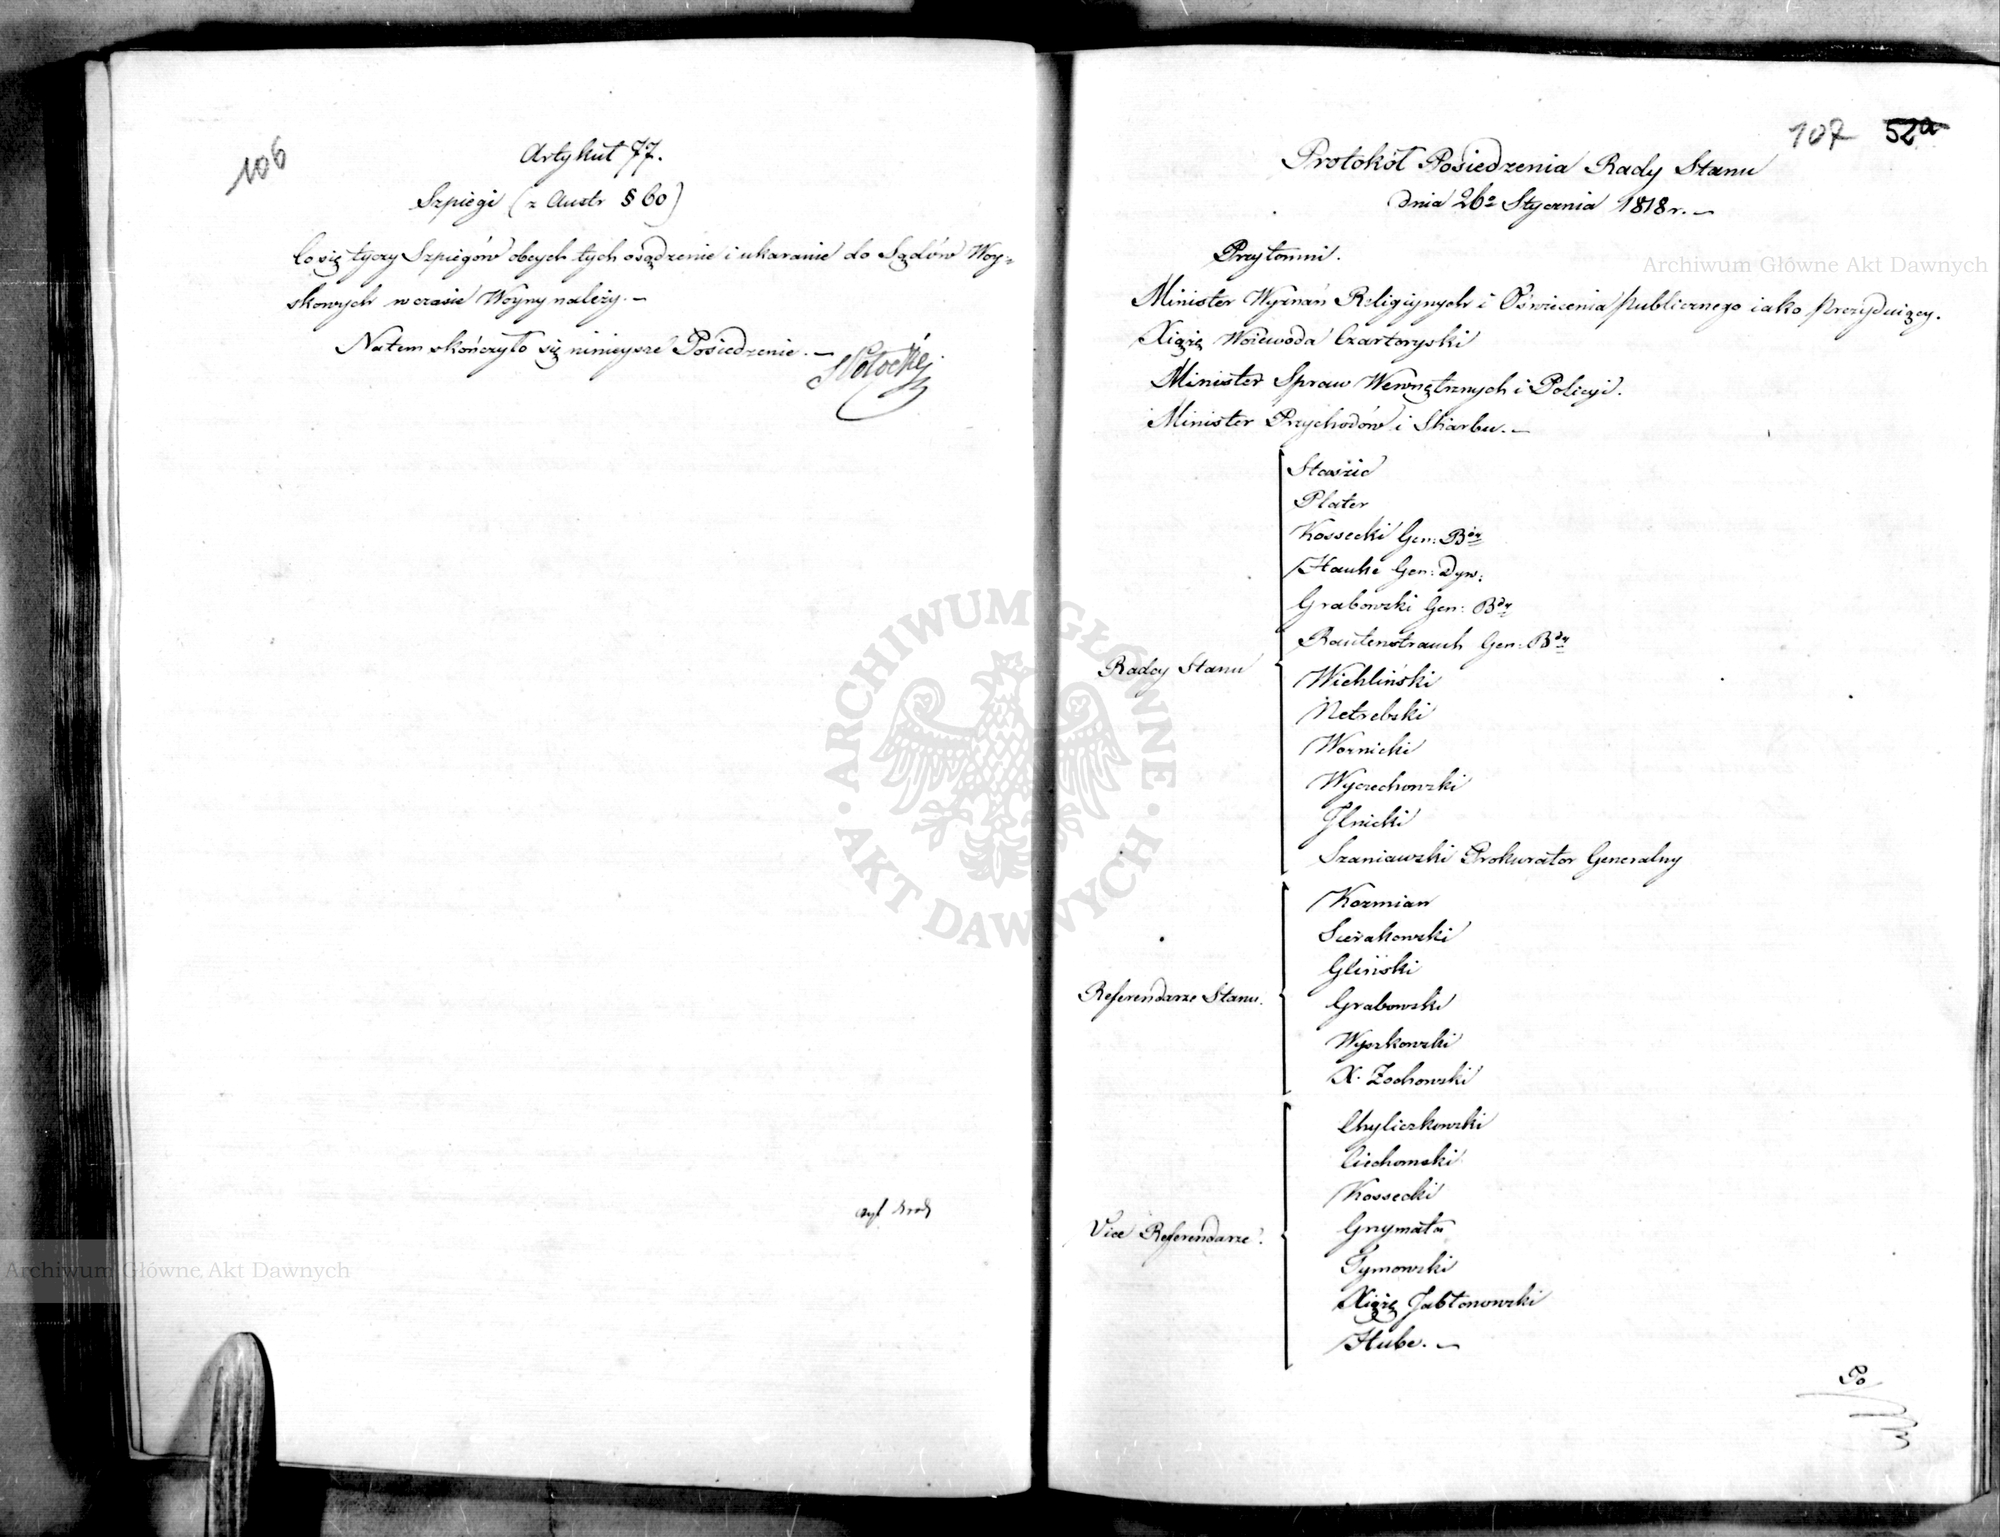 106
Artykuł 77.
Szpiegi (z Austr § 60)
Co się tyczy Szpiegów obcych tych osądzenie i ukaranie do Sądów Woy-
skowych w czasie Woyny należy. —
Natem skończyło się ninieysze Posiedzenie. —
Potocki
107 52a
Protokół Posiedzenia Rady Stanu
dnia 26º Stycznia 1818 r. —
Przytomni.
Minister Wyznań Religiynych i Oświecenia Publicznego iako Prezyduiący.
Xiążę Woiewoda Czartoryski
Minister Spraw Wewnętrznych i Policyi.
Minister Przychodów i Skarbu. —
Radcy Stanu
Staszic
Plater
Kossecki Gen: Bdy
Hauke Gen: Dyw:
Grabowski Gen: Bdy
Rautenstrauch Gen: Bdy
Wichliński
Netrebski
Woznicki
Wyczechowski
Jlnicki
Szaniawski Prokurator Generalny
Referendarze Stanu.
Kozmian
Sierakowski
Gliński
Grabowski
Wyszkowski
X. Zochowski
Vice Referendarze.
Chyliczkowski
Ciechomski
Kossecki
Grzymała
Tymowski
Xiążę Jabłonowski
Hube. —
Po
ARCHIWUM GŁÓWNE AKT DAWNYCH
Archiwum Główne Akt Dawnych
Archiwum Główne Akt Dawnych